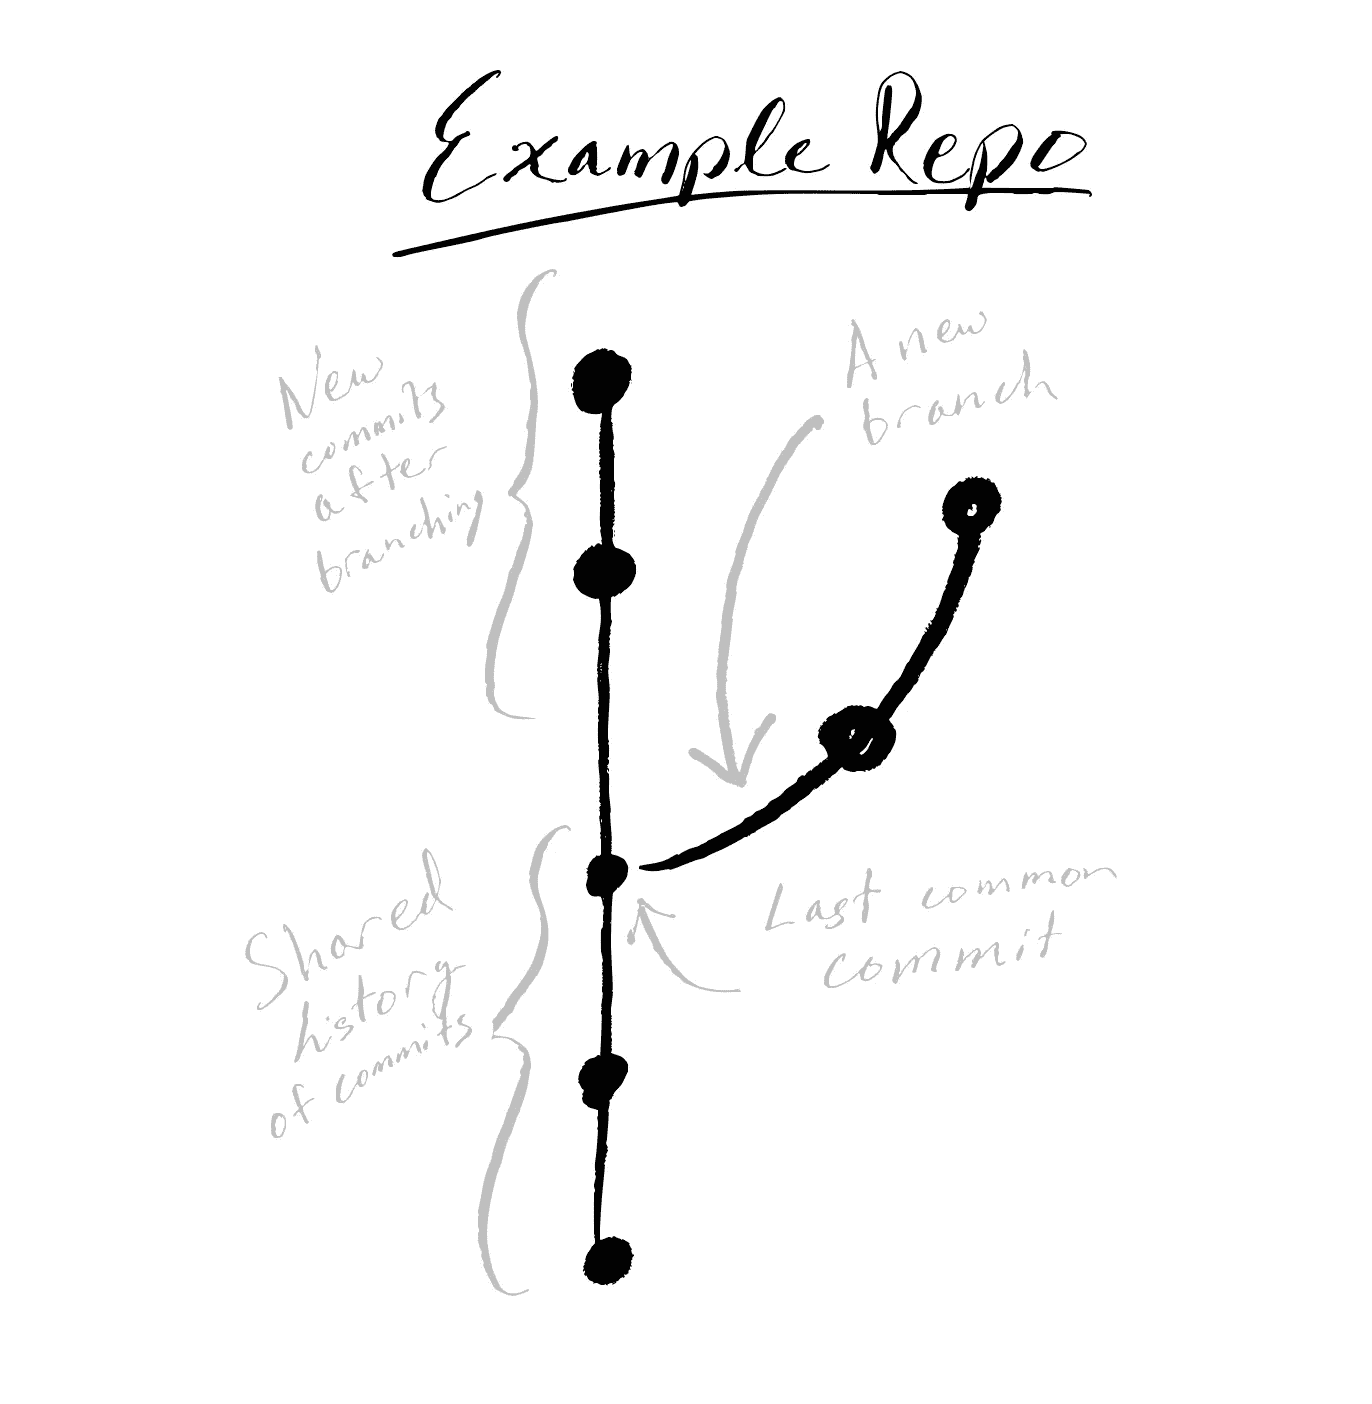 Example Repo
New
commits
after
branching
A new
branch
Shared
history
of commits
Last common
commit